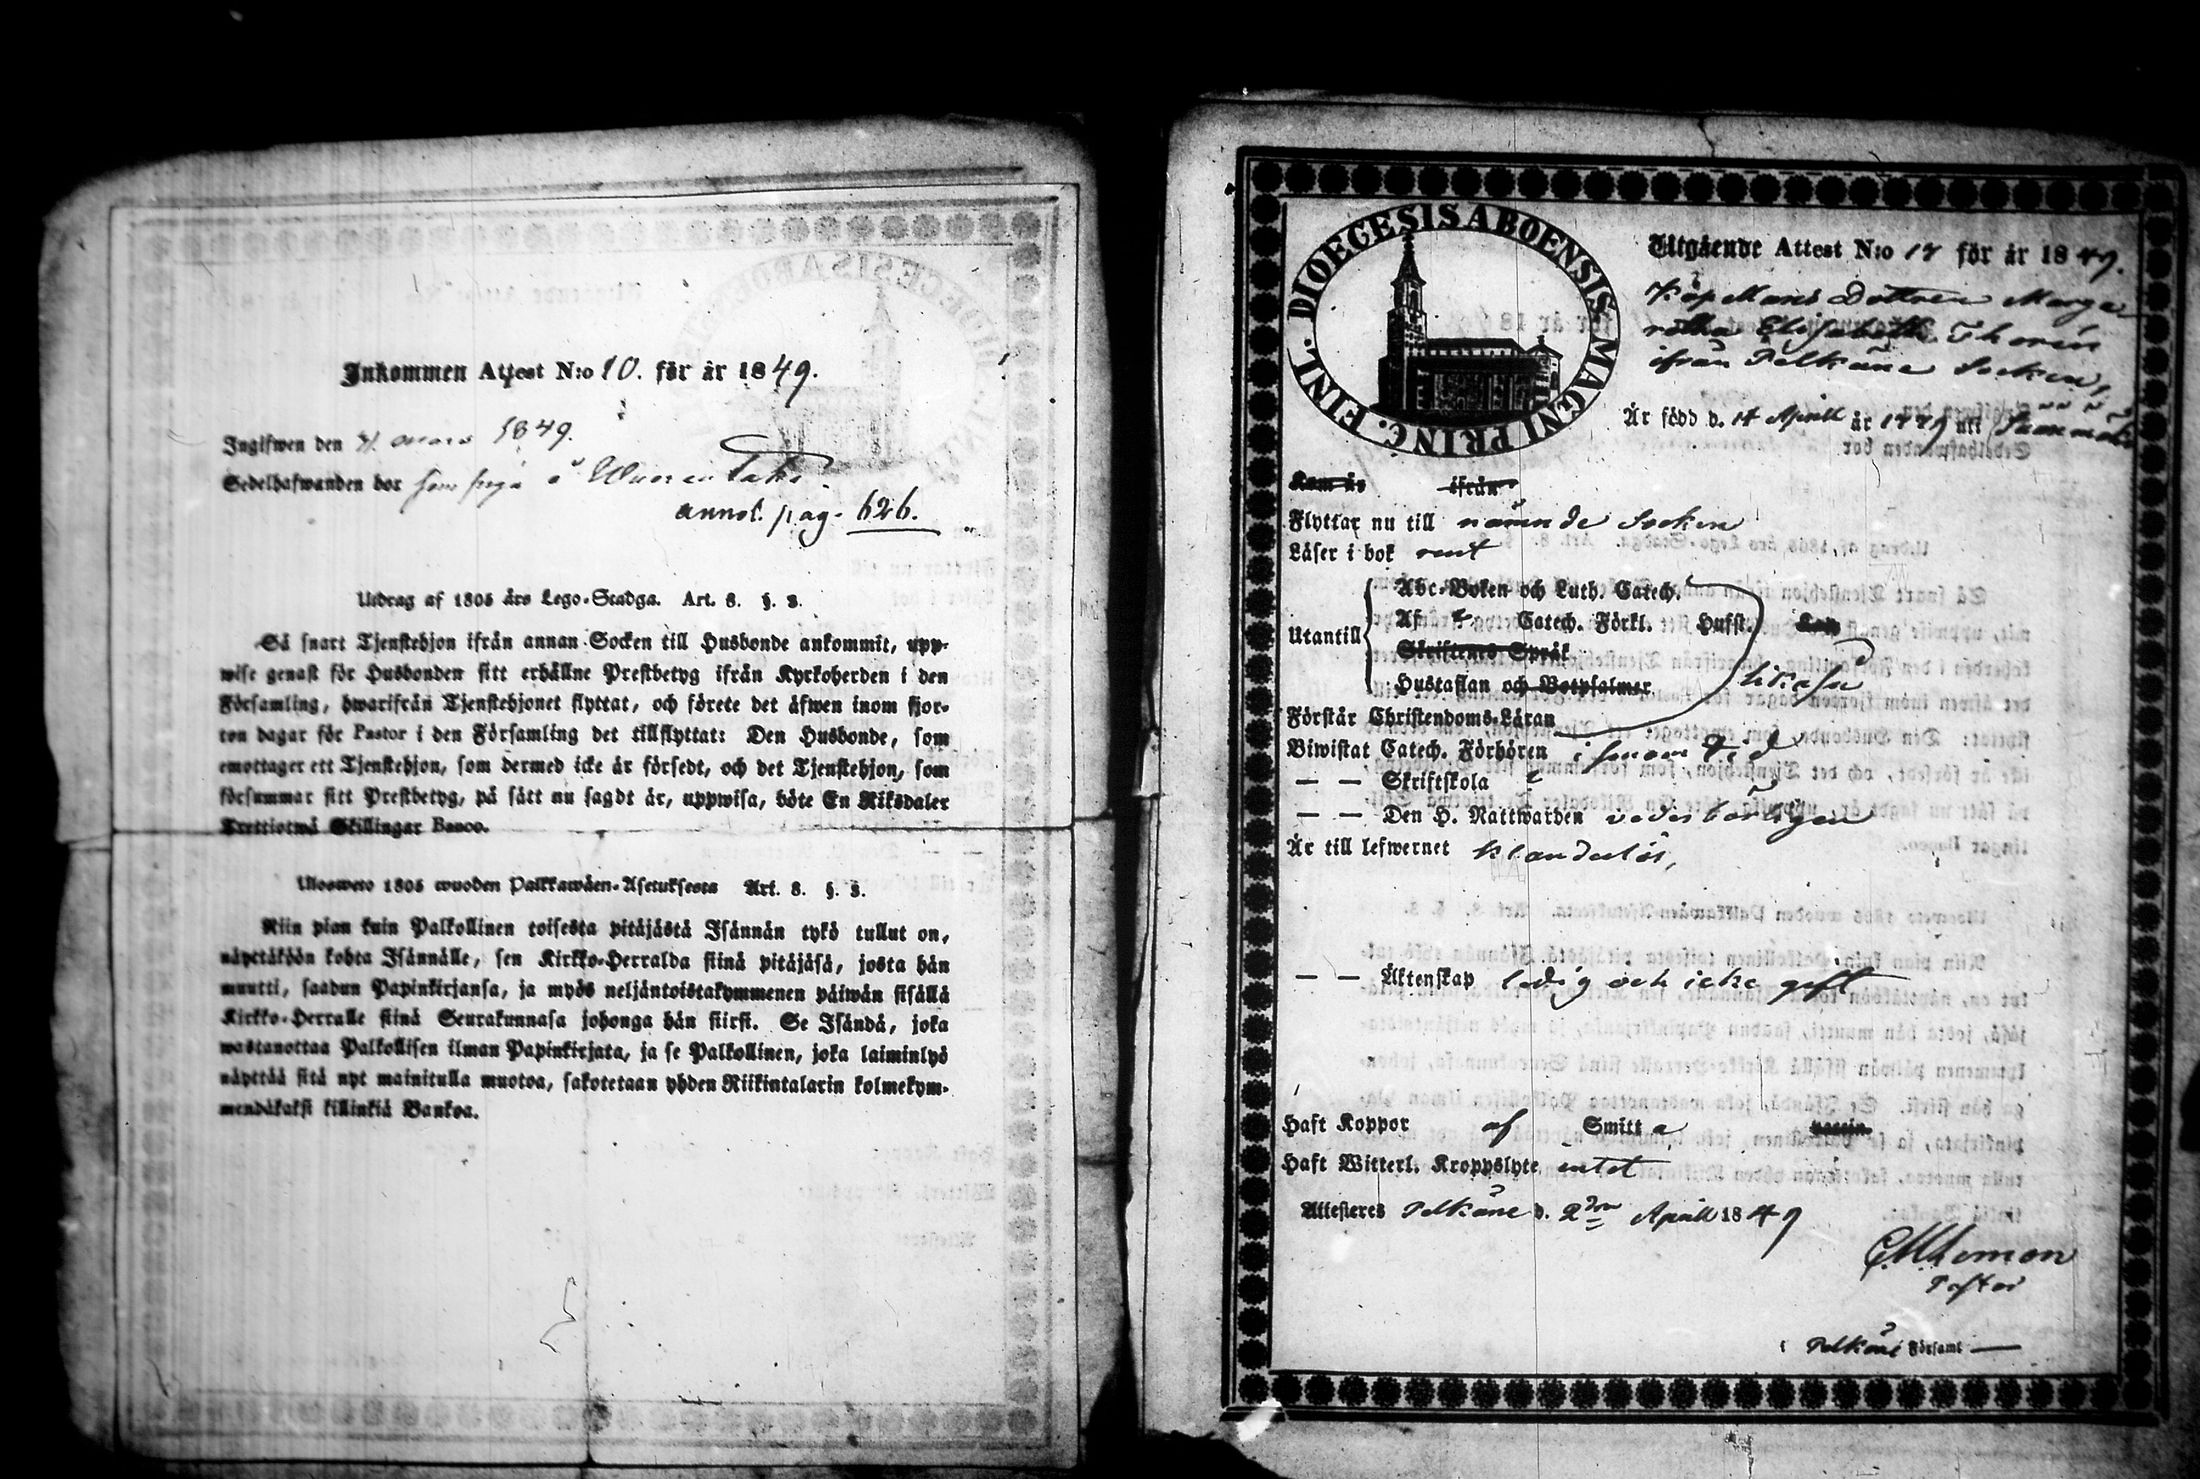 Inkommen Attest N:o 10. för år 1849.
Ingifwen den 1849.
Sedelhafwanden bor som piga å
annot. pag. 626.
Utdrag af 1805 års Lego-Stadga. Art. 8. §. 3.
Så snart Tjenstehjon ifrån annan Socken till Husbonde ankommit, upp-
wise genast för Husbonden sitt erhållne Prestbetyg ifrån Kyrkoherden i den
Församling, hwarifrån Tjenstehjonet flyttat, och förete det äfwen inom fjor-
ton dagar för Pastor i den Församling det tillflyttat: Den Husbonde, som
emottager ett Tjenstehjon, som dermed icke är försedt, och det Tjenstehjon, som
försummar sitt Prestbetyg, på sätt nu sagdt är, uppwisa, böte En Riksdaler
Trettiotwå Skillingar Banco.
Ulosweto 1805 wuoden Palkkawäen-Asetuksesta Art. 8. §. 3.
Niin pian kuin Palkollinen toisesta pitäjästä Isännän tykö tullut on,
näyttäköön kohta Isännälle, sen Kirkko-Herralda siinä pitäjäsä, josta hän
muutti, saadun Papinkirjansa, ja myös neljäntoistakymmenen päiwän sisällä
Kirkko-Herralle siinä Seurakunnasa johonga hän siirsi. Se Isändä, joka
wastanottaa Palkollisen ilman Papinkirjata, ja se Palkollinen, joka laiminlyö
näyttää sitä nyt mainitulla muotoa, sakotetaan yhden Riikintalarin kolmekym-
mendäkaksi killinkiä Bankoa.
DIOECESIS ABOENSIS MAGNI PRINC. FINL.
Utgående Attest N:o 17 för år 1849.
Köpmans Dottren Marga
retha Elisabeth Thorén
ifrån Pelkäne Socken,
Är född d. 14 Aprill år uti
Kom år ifrån
Flyttar nu till nämnde Socken
Läser i bok rent
Utantill
Abc-Boken och Luth. Catech.
Af Catech. Förkl. Hufst.
Skriftenes Språk
Hustaflan och Botpsalmer
likaså
Förstår Christendoms-Läran
Biwistat Catech. Förhören i sinom tid
— — Skriftskola
— — Den H. Nattwarden vederbörligen
Är till lefwernet klanderlös,
— — Äktenskap ledig och icke gift
Haft Koppor af Smitta
Haft Witterl. Kroppslyte intet
Attesteres Pelkäne d. 2dra Aprill 1849
Pastor
i Pelkäne Församl